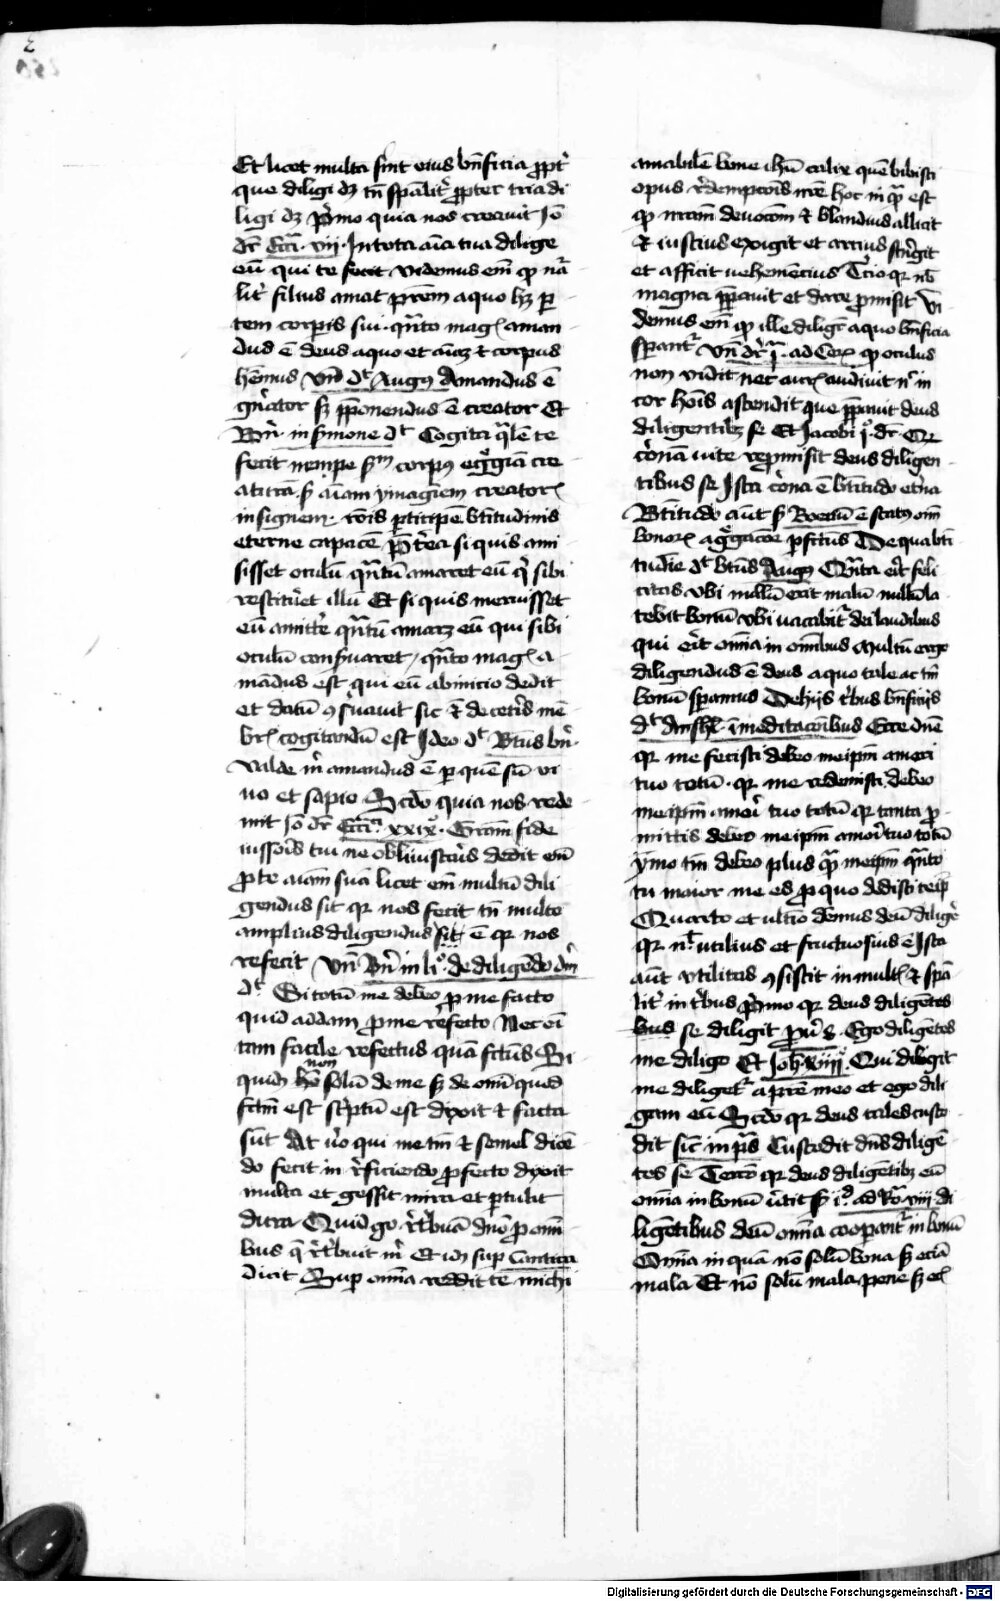 Et licet multa sint eius bn̄ficia ꝓpt̾
que diligi dꝫ tn̄ sp̄alit̾ ꝓpter tria di
ligi dꝫ p̾mo quia nos creavit Jō
dr̄ Ecci͛ · vij · In tota aīa tua dilige
eū qui te fecit videmus em̄ ꝙ na͛
lit̾ filius amat prēm a quo hꝫ ꝑ
tem corpis sui · qn̄to mag̾ aman
dus ē deus a quo et aīaꝫ ⁊ corpus
hēmus Vn̄ dt̾ Augꝰ Amandus ē
gn̄ator sꝫ p̄ponendus ē creator Et
Bn̾ · in s̾mone dt̾ Cogita q̄lē te
fecit nempe sm̄ corpꝰ egͣgiā cre
aturā · s̾ aīam ymagīem creator̾
insignem · rōis ꝑticipē btitudinis
eterne capacē P̄t̾ea si quis ami
sisset oculū qn̄tū amaret eū q̄ sibi
restitu̾et illū Et si quis meruisset
eū amitt̾e qn̄tū amaꝫ eū qui sibi
oculū consu̾aret / qn̄to mag̾ a
mādus est qui eū ab inicio dedit
et datū ꝯs̾uauit sic ⁊ de cet̾is mē
br̾ cogitandū est Ideo dt̾ Btūs bn̾ ·
Valde m̾ amandus ē ꝑ quē sū vi
uo et sapio Scdō quia nos rede
mit Jō dr̄ Ecci͛ · xxix° · Grām fide
iussoīs tui ne obliuiscar̾is dedit em̄
ꝓ te aīam suā licet em̄ multū dili
gendus sit qꝛ nos fecit tn̄ multo
amplius diligendus sit ē qꝛ nos
refecit Vn̄ Bn̄ in li° · de diligēdo dm̄
dt̾ Si totū me debeo ꝓ me facto
quid addam ꝓ me refecto Nec em̄
tam facile refectus quā fc̄tus Si
quid non hēo solū de me sꝫ de om̄i quod
fc̄m est sc̾ptū est dixit ⁊ facta
sūt At u̾o qui me tm̄ ⁊ semel dicē
do fecit in r̾ficiendo ꝓfecto dixit
multa et gessit mira et ꝑtulit
dura Quid ḡo r̾t̾buā dn̄o ꝓ omi
bus q̄ r̾t̾buit m̾ Et id sup Cantica
dicit Sup om̄ia reddit te michi
amabilē bone ihū calix quē bibisti
opus r̾dempcōis nr̄e hoc in qͣ est
ꝙ nrām deuocōm ⁊ blandius allicit
⁊ iustius exigit et arcius st̾ngit
et afficit vehemēcius Tc̾io qꝛ nob̾
magna p̄parauit et dare ꝓmisit Vi
demus em̄ ꝙ ille diligit̾ a quo bn̄ficia
sperant̾ Vn̄ dr̄ i͛ · ad Cor̾ ꝙ oculus
non vidit nec aur̾ audiuit n̾ in
cor hoīs ascendit que p̄parauit deus
diligentibꝫ se Et Jacobi i° · dr̄ · Qꝛ
corōnā vite repromisit deus diligen
tibus se Ista corōna ē btitudo et̾na
Btitudo aūt s̾ Boeciū ē statꝰ om̄
bonor̾ aggͣgacōe ꝑfctus De qua bti
tudīe dt̾ btūs Augꝰ Quāta er̾it feli
citas vbi nullū erit malū nullū la
tebit bonū vbi vacabit̾ dei laudibus
qui erit om̄ia in om̄ibus Multū ergo
diligendus ē deus a quo tale ac tm̄
bonū speramus De hijs t̾bus bn̄ficijs
dt̾ Anshl̾ · i meditacōibus Ecce dn̄e
qꝛ me fecisti debeo me ip̄m amori
tuo totū · qꝛ me redemisti debeo
me ip̄m amori tuo totū qꝛ tanta ꝓ
mittis debeo me ip̄m amori tuo totū
ymo tm̄ debeo plus qͣ me ip̄m qn̄to
tu maior me es ꝓ quo dedisti teip̄
Quarto et ultīo dēmus deū dilige̾
qꝛ n̾l utilius et fructuosius ē Ista
aūt vtilitas ꝯsistit in mult̾ ⁊ spā
lit̾ in t̾bus p̾mo qꝛ deus diligētes
bus se diligit pu̾ 8 · Ego diligētes
me diligo Et Joh̾ · xiiij° · Qui diligit
me diliget̾ a prē meo et ego dili
gam eū Scdō qꝛ deus tales custo
dit sic̄ in p̄s Custodit dn̄s diligē
tes se Tercō qꝛ deus diligētibꝫ eū
om̄ia in bonū u̾tit s̾ i° · ad Ro͛ viij · di
ligētibus deū om̄ia cooperant̾ in bonū
Om̄ia inquā nō solū bona sꝫ eciā
mala Et nō solū mala pene sꝫ et̾